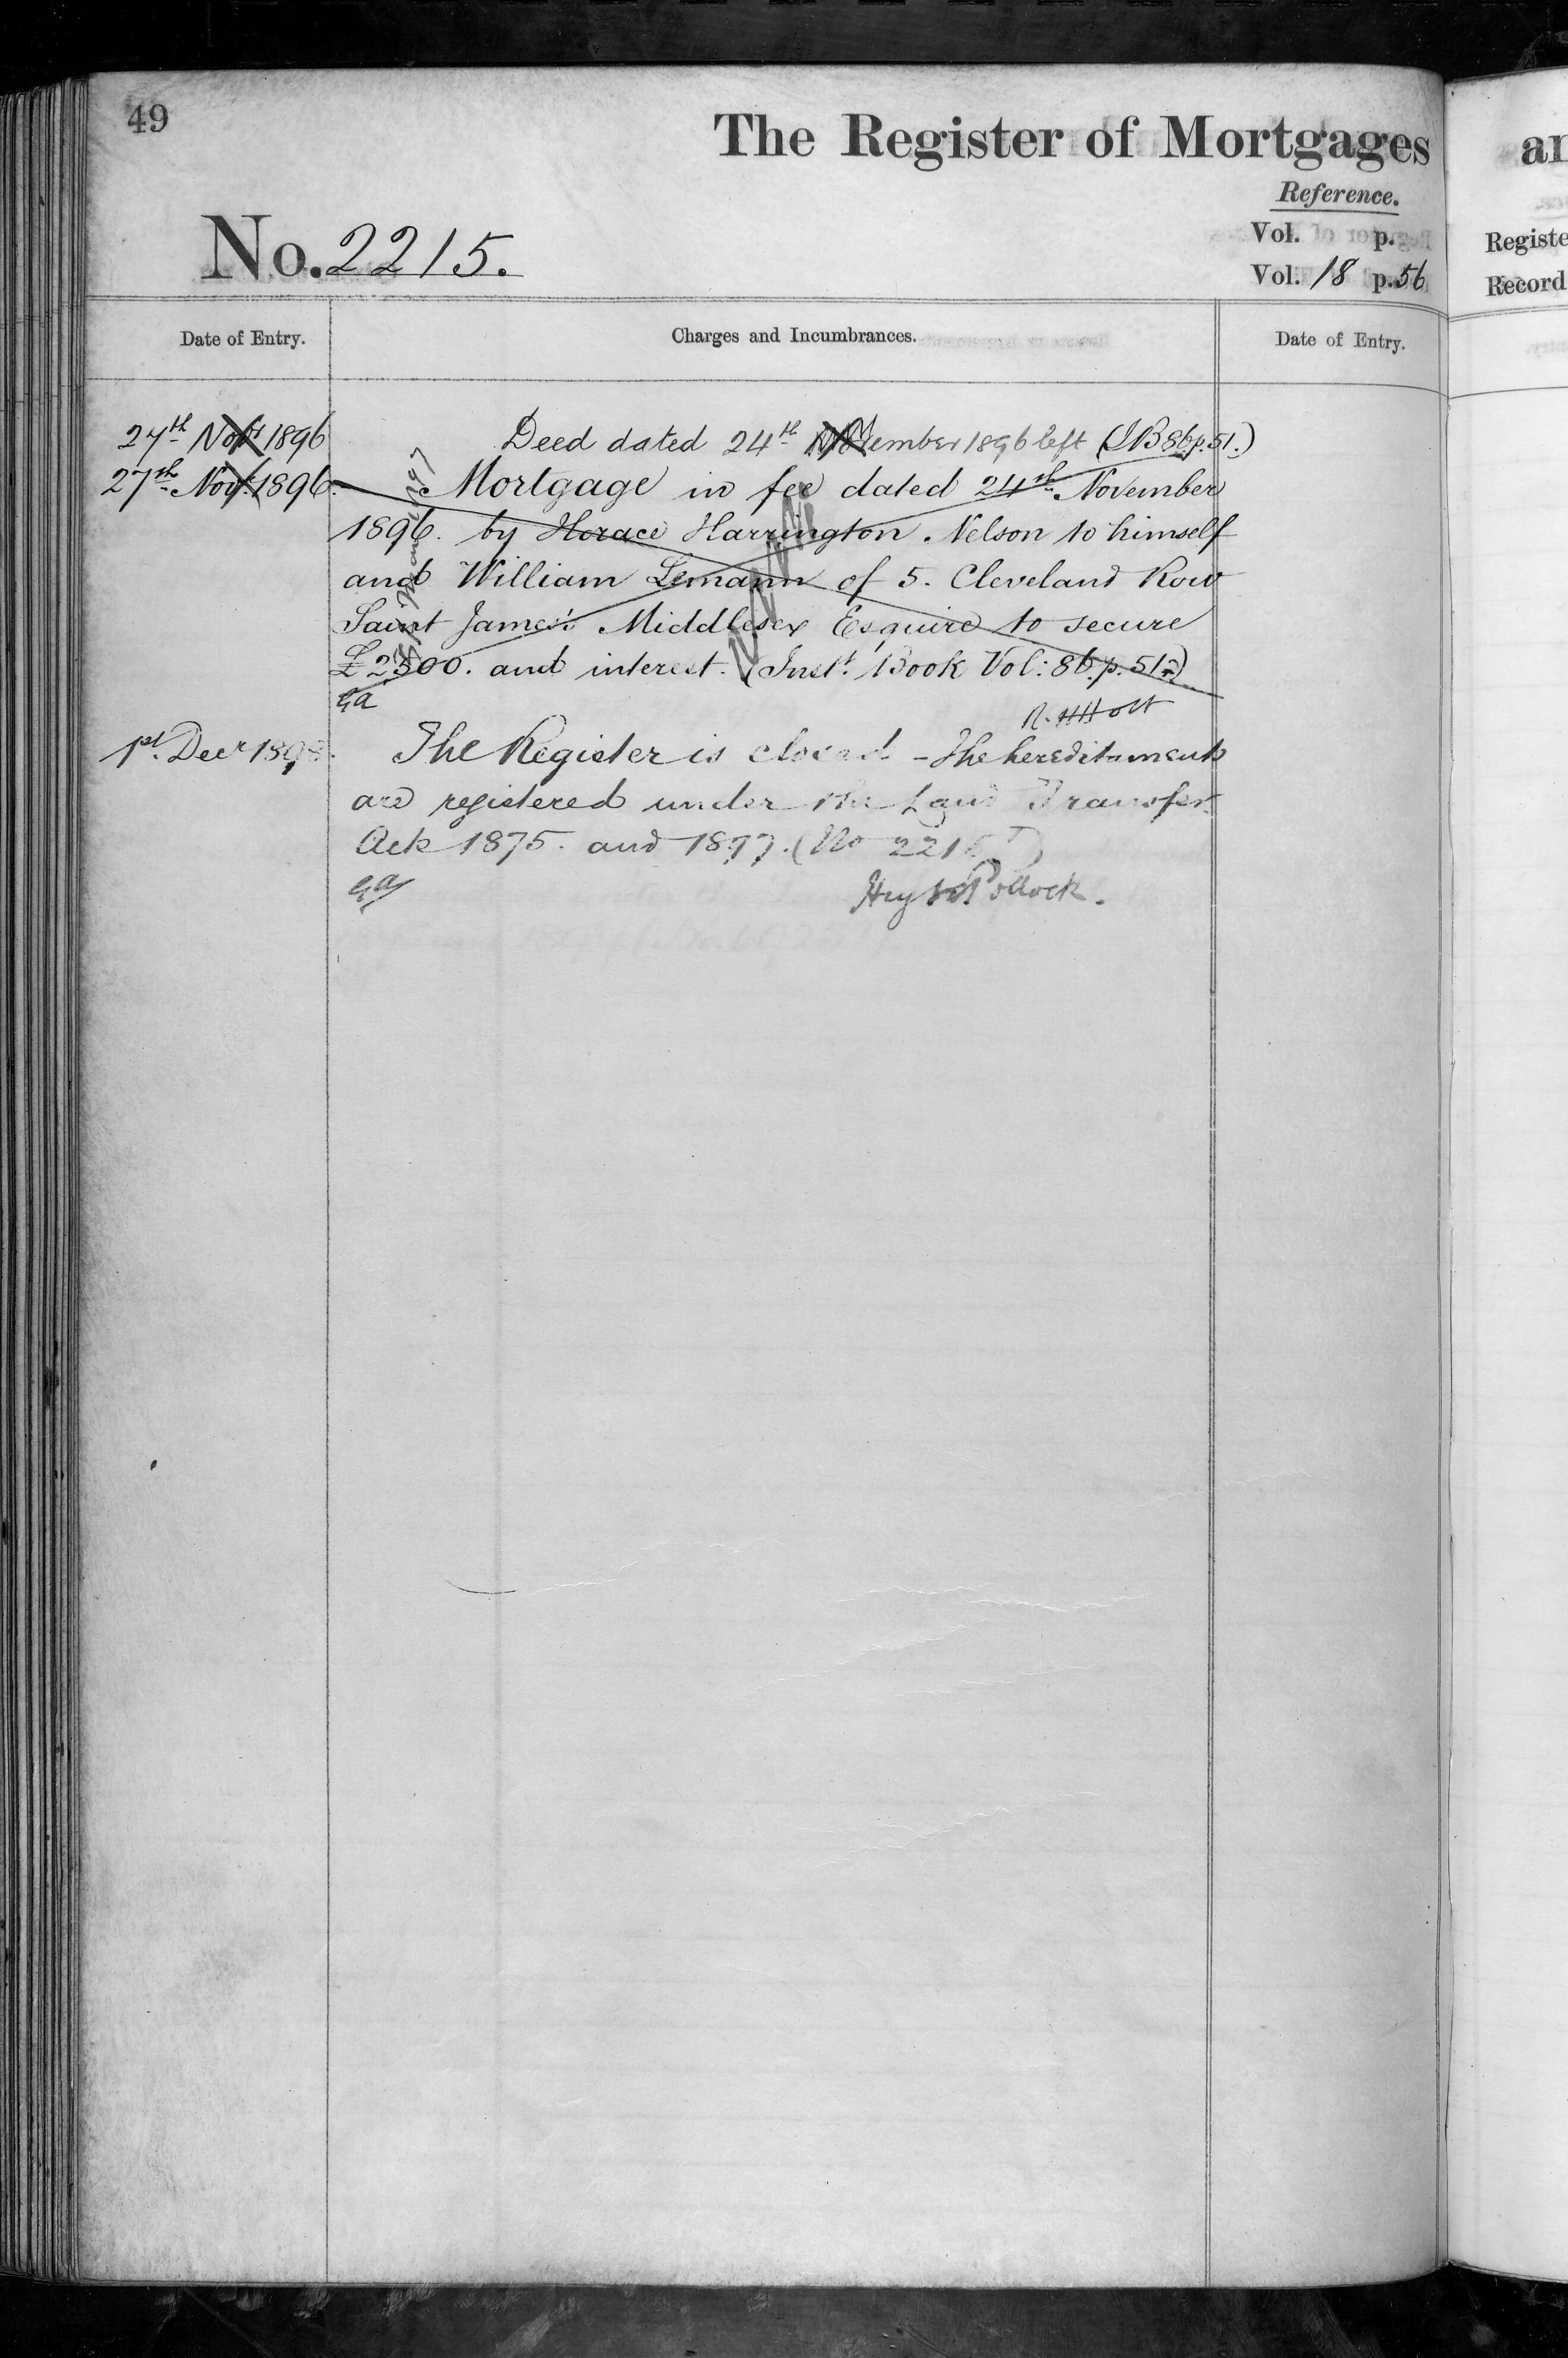 49
The Register of Mortgages
Reference.
Vol. p.
No. 2215.
Vol. 18 p. 56
Registe
Record
Date of Entry.
Charges and Incumbrances.
Date of Entry.
27th Novr 1896
Deed dated 24th November 1896 left (I B 86 p. 51.)
27th Novr. 1896.
Mortgage in fee dated 24th November
1896. by Horace Harrington Nelson to himself
and William Lemann of 5. Cleveland Row
Saint James's Middlesex Esquire to secure
£2500. and interest. (Inst. Book Vol: 86. p. 51.)
Ga
R. H Holt
1st Decr 189
The Register is closed - The hereditaments
are registered under the Land Transfer
Acts 1875. and 1897. (No 221
Ga
Pollock.